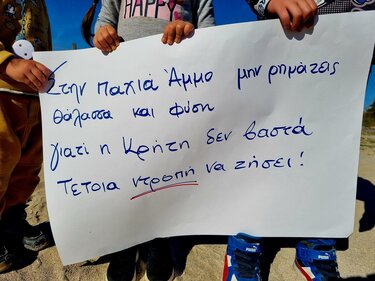 HAPPY
Στην Παχιά Άμμο μην ρημάζεις
θάλασσα και φύση
γιατί η Κρήτη δεν βαστά
τέτοια ντροπή να ζήσει!